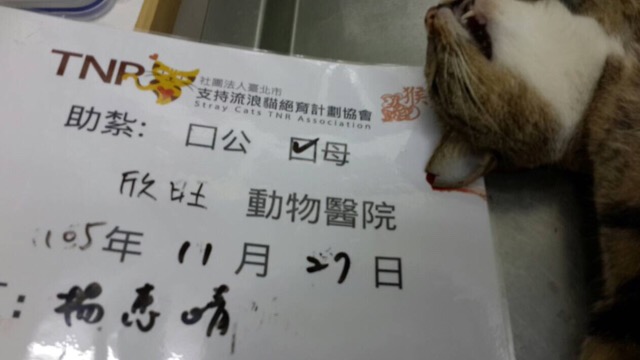 TNR
社團法人臺北市
支持流浪貓絕育計劃協會
Stray Cats TNR Association
助紮: □公 ☑母
欣旺 動物醫院
105年 11月 27日
: 楊惠晴